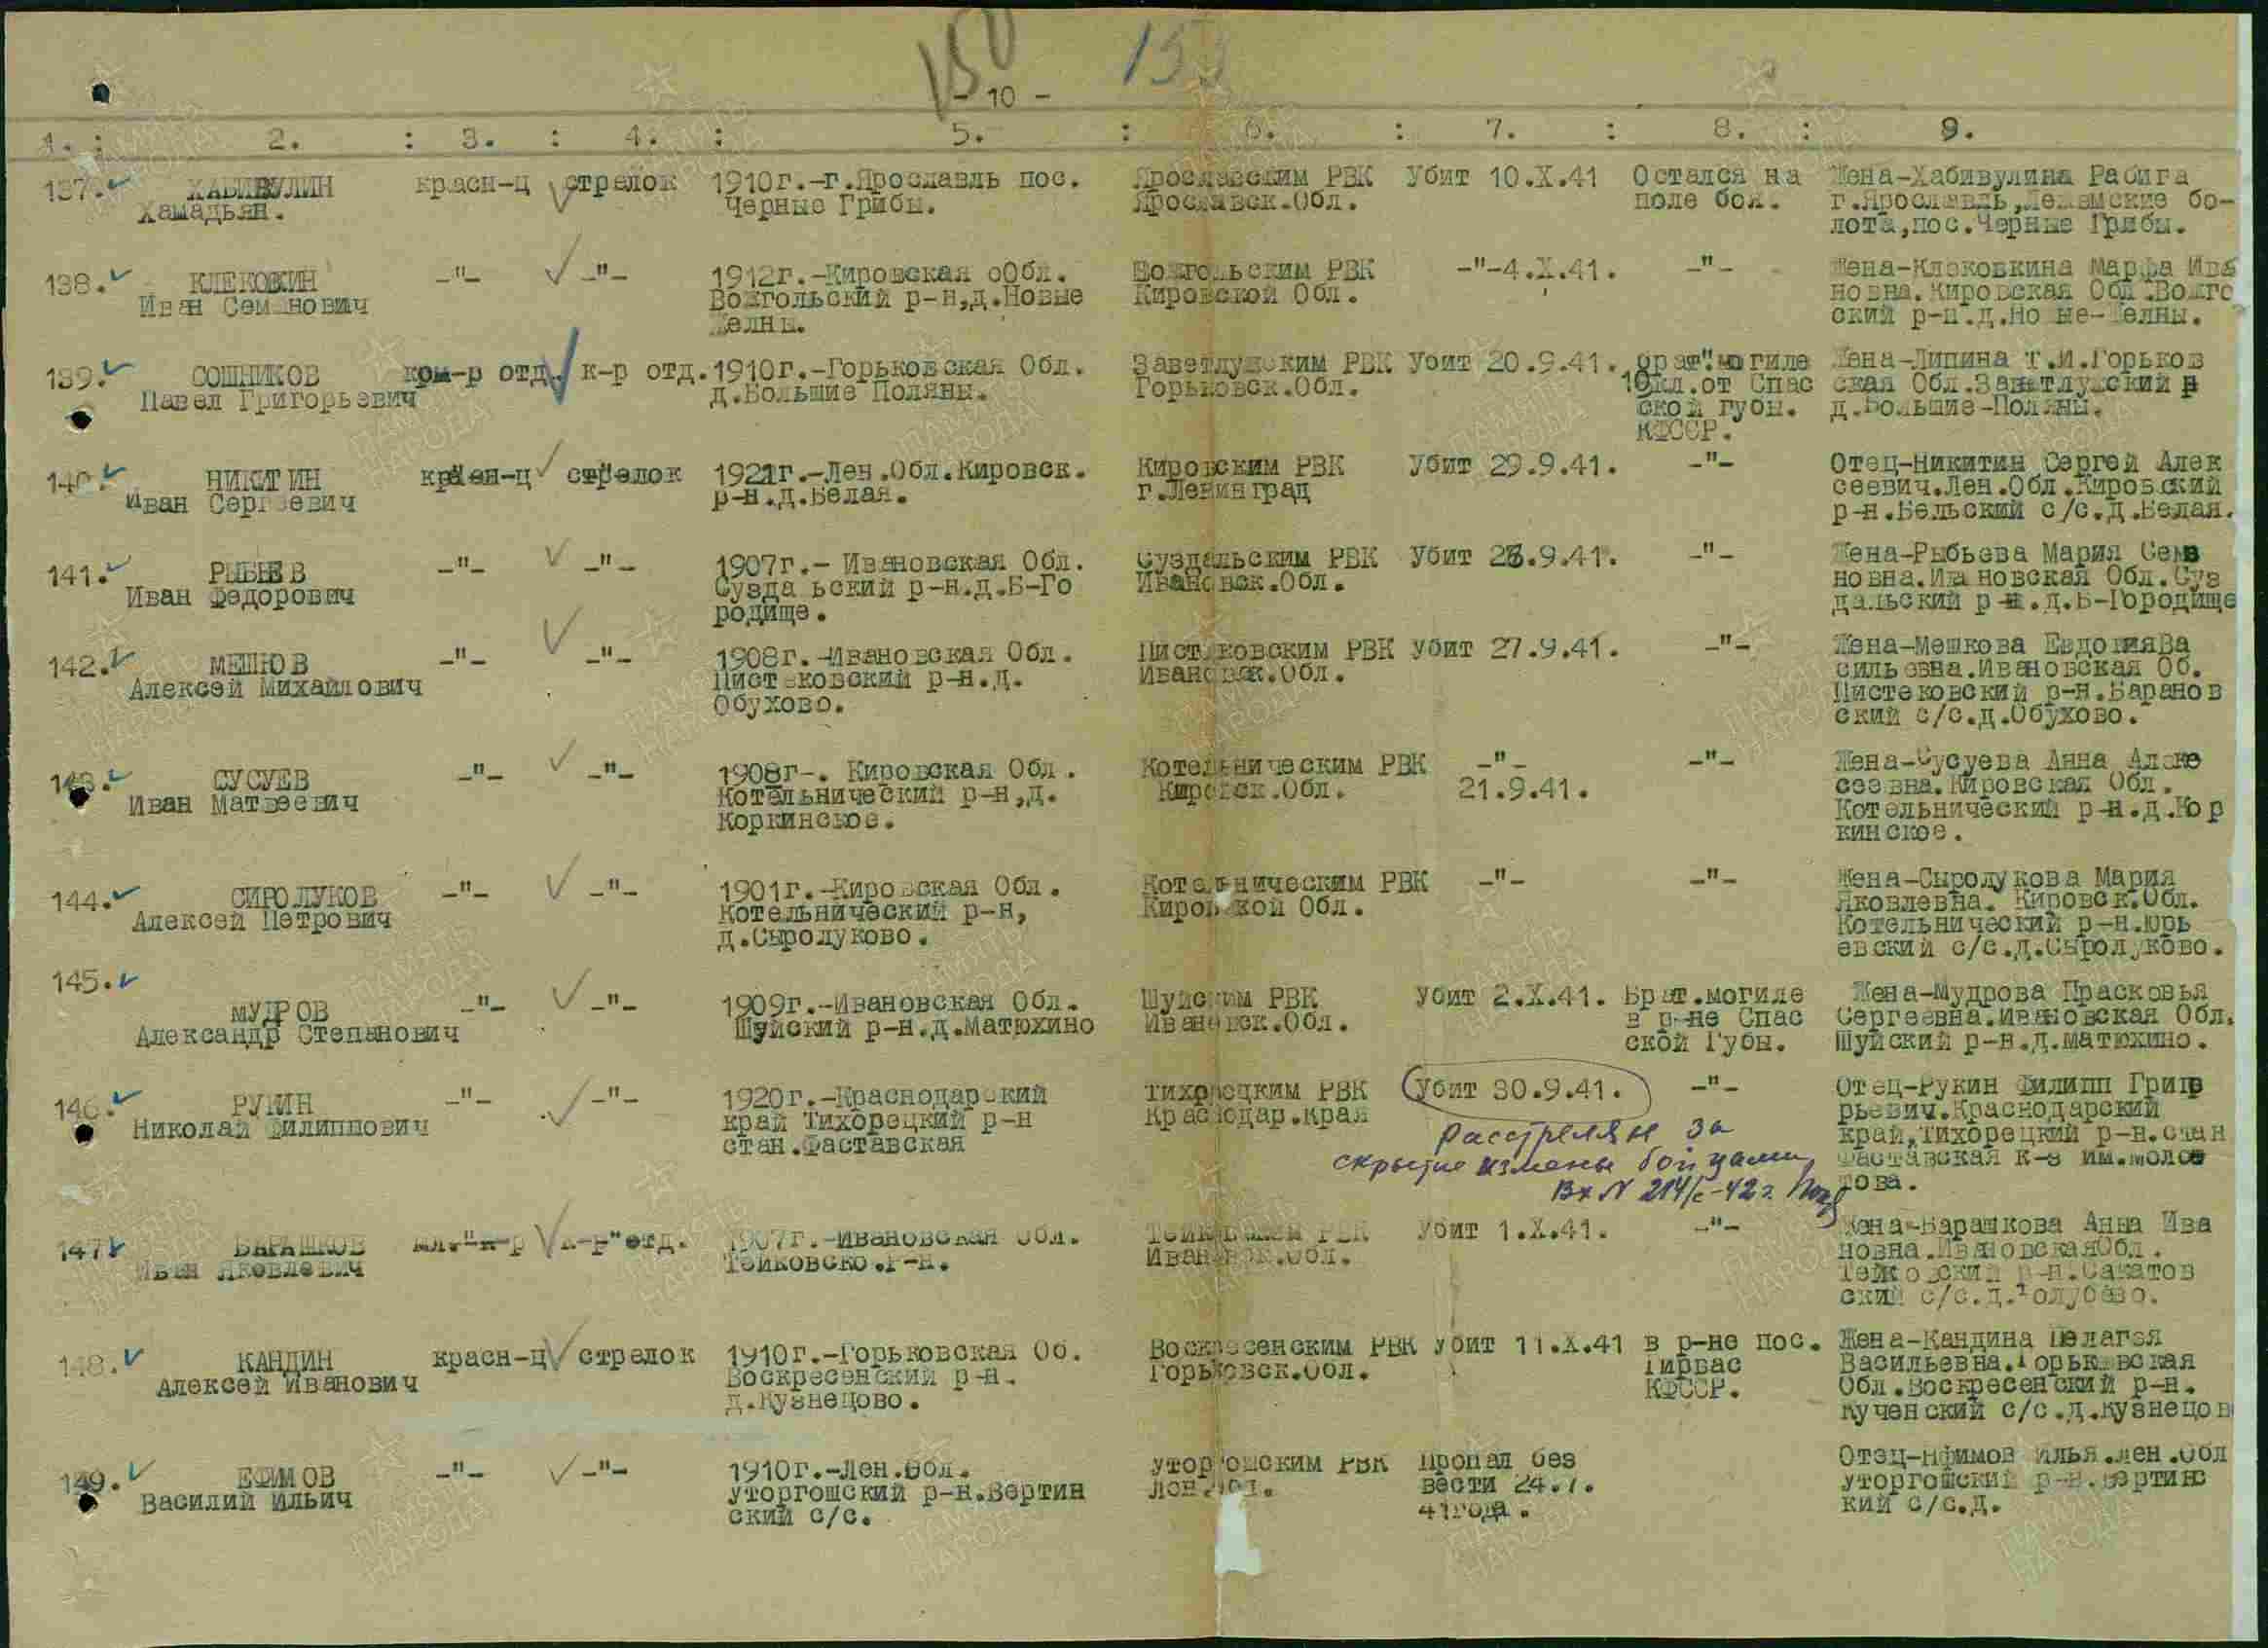 150
- 10 -
1. : 2. : 3. : 4. : 5. : 6. : 7. : 8. : 9.
137. ХАБИВУЛИН красн-ц стрелок 1910г.-г.Ярославль пос. Ярославским РВК Убит 10.X.41 Остался на Жена-Хабивулина Рабига
Хамадьян. Черные Грибы. Ярославск.Обл. поле боя. г.Ярославль, бо-
лота,пос.Черные Грибы.
138. -"- -"- 1912г.-Кировская оОбл. РВК -"-4.X.41. -"- Жена-Клековкина Марфа Ива
Иван Семенович р-н,д.Новые Кировской Обл. новна.Кировская Обл.
ский р-н.д.
139. СОШНИКОВ ком-р отд. к-р отд. 1910г.-Горьковская Обл. Заветлужским РВК Убит 20.9.41. Брат.могиле Жена-Липина Т.И.Горьков
Павел Григорьевич д.Большие Поляны. Горьковск.Обл. от Спас ская Обл.Заветлужский р
ской губы. д.Большие-Поляны.
КФССР.
140. НИКИТИН красн-ц стрелок 1921г.-Лен.Обл.Кировск. Кировским РВК Убит 29.9.41. -"- Отец-Никитин Сергей Алек
Иван Сергеевич р-н.д.Белая. г.Ленинград сеевич.Лен.Обл.Кировский
р-н.Бельский с/с.д.Белая.
141. РЫБЬЕВ -"- -"- 1907г.- Ивановская Обл. Суздальским РВК Убит -"- Жена-Рыбьева Мария
Иван Федорович Сузда ьский р-н.д.Б-Го Ивановск.Обл. новна.Ивановская Обл.Суз
родище. дальский р-н.д.Б-Городище
142. МЕШКОВ -"- -"- 1908г.-Ивановская Обл. Пистяковским РВК Убит 27.9.41. -"- Жена-Мешкова ЕвдокияВа
Алексей Михайлович Пистековский р-н.д. Ивановск.Обл. сильевна.Ивановская Об.
Обухово. Пистековский р-н.Баранов
ский с/с.д.Обухово.
143. СУСУЕВ -"- -"- 1908г-. Кировская Обл. Котельническим РВК -"- -"- Жена-Сусуева Анна Алекс
Иван Матвеевич Котельнический р-н,д. Кировск.Обл. 21.9.41. сеевна.Кировская Обл.
Коркинское. Котельнический р-н.д.Кор
кинское.
144. СИРОЛУКОВ -"- -"- 1901г.-Кировская Обл. Котельническим РВК -"- -"- Жена-Сыролукова Мария
Алексей Петрович Котельнический р-н, Кировской Обл. Яковлевна. Кировск.Обл.
д.Сыролуково. Котельнический р-н.Юрь
евский с/с.д.Сыролуково.
145.
МУДРОВ -"- -"- 1909г.-Ивановская Обл. Шуйским РВК Убит 2.X.41. Брат.могиле Жена-Мудрова Прасковья
Александр Степанович Шуйский р-н.д.Матюхино Ивановск.Обл. в р-не Спас Сергеевна.Ивановская Обл.
ской Губы. Шуйский р-н.д.Матюхино.
146. РУКИН -"- -"- 1920г.-Краснодарский Тихорецким РВК Убит 30.9.41. -"- Отец-Рукин Филипп Григо
Николай Филиппович край Тихорецкий р-н Краснодар.края рьевич.Краснодарский
стан.Фаставская край,Тихорецкий р-н.стан
Фаставская к-з им.Молов
това.
Расстрелян за
скрытие измены бойцами
Вх N 214/с-42г.
147. БАРАШКОВ мл."к-р к-р"отд. 1907г.-Ивановская Обл. Тейковским РВК Убит 1.X.41. -"- Жена-Барашкова Анна Ива
Иван Яковлевич Тейковско.р-н. Ивановск.Обл. новна.ИвановскаяОбл.
Тейковский р-н.Сахатов
ский с/с.д.
148. КАНДИН красн-ц стрелок 1910г.-Горьковская Об. Воскресенским РВК Убит 11.X.41 в р-не пос. Жена-Кандина Пелагея
Алексей Иванович Воскресенский р-н. Горьковск.Обл. Гирвас Васильевна.Горьковская
д.Кузнецово. КФССР. Обл.Воскресенский р-н.
Кученский с/с.д.Кузнецов
149. ЕФИМОВ -"- -"- 1910г.-Лен.Обл. Уторгошским РВК Пропал без Отец-Ефимов Илья.Лен.Обл
Василий Ильич Уторгошский р-н.Вертин Лен.Обл. вести Уторгошский р-н.Вертинс
ский с/с. 41года. кий с/с.д.